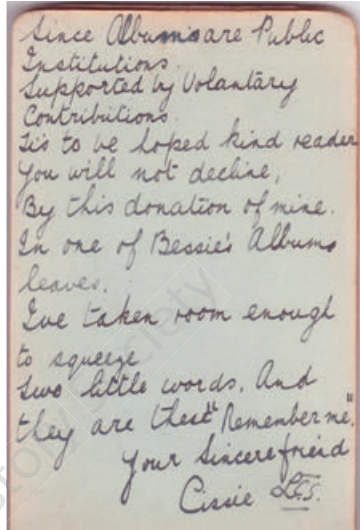 Since Albums are Public
Institutions.
Supported by Volantary
Contributions.
Tis to be hoped kind reader
You will not decline,
By this donation of mine.
In one of Bessie's Albums
leaves.
Ive taken room enough
to squeeze
Two little words. And
they are these "Remember me".
Your Sincere friend
Cissie